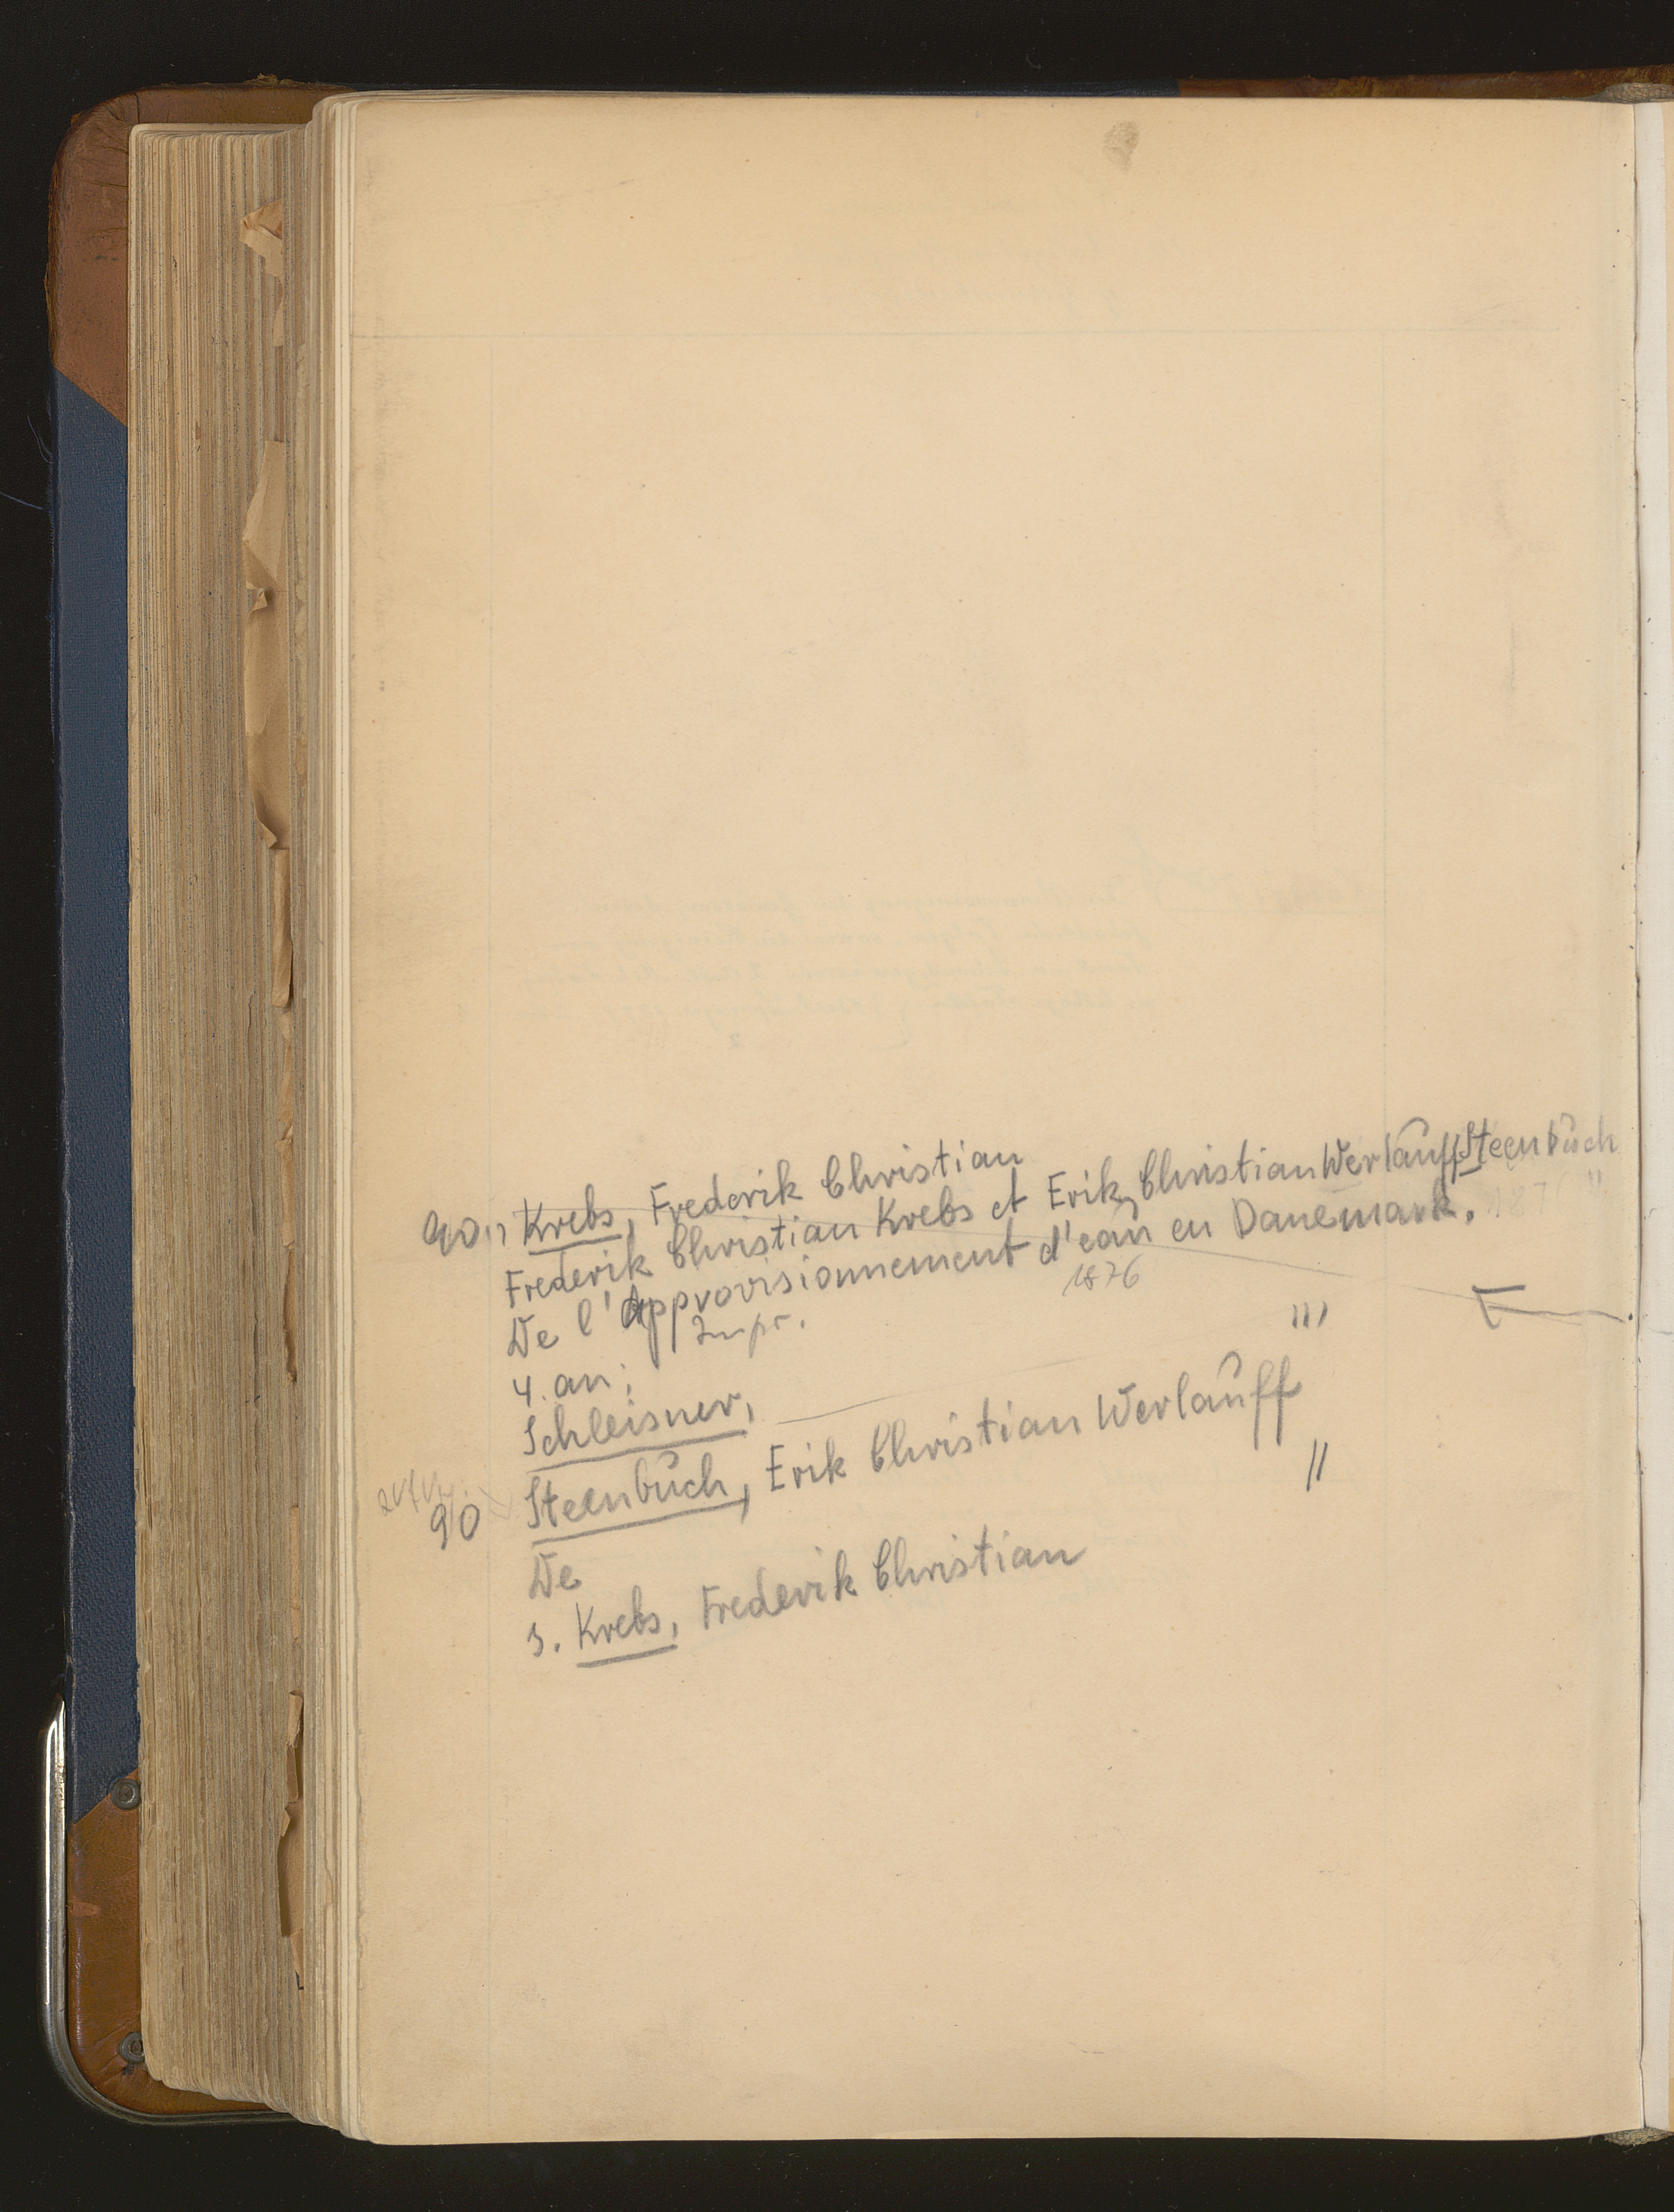 90 Krebs, Frederik Christian
Frederik Christian Krebs et Erik Christian Werlauff Steenbuch
De l'Approvisionnement d'eau en Danemark.
1876
4. an;
Schleisner,
90 Steenbuch, Erik Christian Werlauff
De
s. Krebs, Frederik Christian